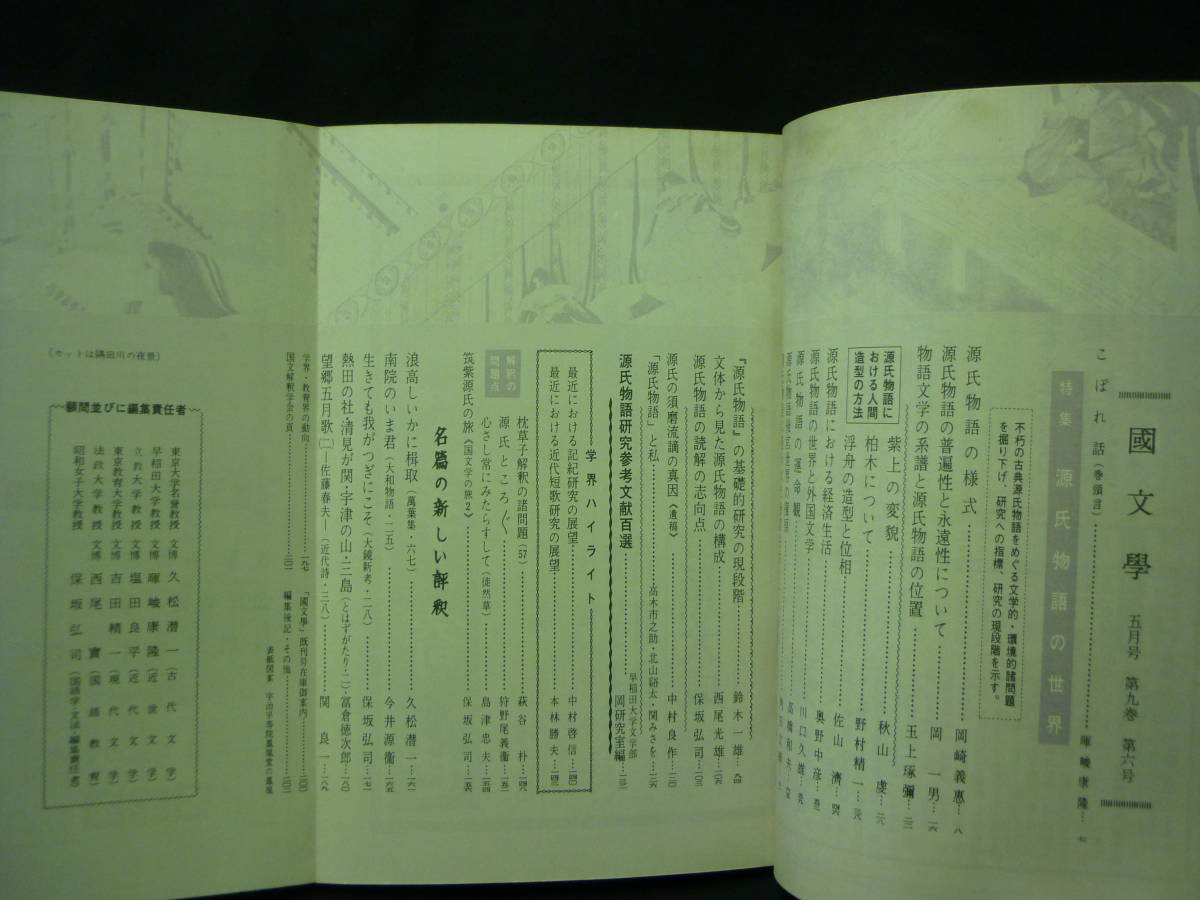 國文學 五月号 第九巻 第六号
こぼれ話(巻頭言)……暉峻康隆…七
特集 源氏物語の世界
不朽の古典源氏物語をめぐる文学的・環境的諸問題
を掘り下げ、研究への指標、研究の現段階を示す。
源氏物語の様式……岡崎義恵…八
源氏物語の普遍性と永遠性について……岡一男…一六
物語文学の系譜と源氏物語の位置……玉上琢彌…二二
源氏物語に
おける人間
造型の方法
紫上の変貌……秋山虔…
柏木について……野村精一…
浮舟の造型と位相……佐山済…
源氏物語における経済生活……奥野中彦…
源氏物語の世界と外国文学……川口久雄…
源氏物語の運命観……高橋和夫…
『源氏物語』の基礎的研究の現段階……鈴木一雄…
文体から見た源氏物語の構成……西尾光雄…
源氏物語の読解の志向点……保坂弘司…
源氏の須磨流謫の真因《遺稿》……中村良作…
「源氏物語」と私……高木市之助・北山谿太・関みさを…
源氏物語研究参考文献百選……早稲田大学文学部
岡研究室編…
学界ハイライト
最近における記紀研究の展望……中村啓信…
最近における近代短歌研究の展望……本林勝夫…
解釈の
問題点
枕草子解釈の諸問題(57)……萩谷朴…
源氏ところ〴〵……狩野尾義衞…
心さし常にみたらすして(徒然草)……島津忠夫…
筑紫源氏の旅《国文学の旅2》……保坂弘司…
名篇の新しい評釈
浪高しいかに楫取(萬葉集・六七)……久松潜一…一六一
南院のいま君(大和物語・二五)……今井源衞…
生きても我がつぎにこそ(大鏡新考・二八)……保坂弘司…
熱田の社・清見が関・宇津の山・三島(とはずがたり・二)…冨倉徳次郎…
望郷五月歌(二)―佐藤春夫―(近代詩・三八)……関良一…
学界・教育界の動向……
国文解釈学会の頁……
「國文學」既刊号在庫御案内……
編集後記・その他……
表紙図案 宇治平等院鳳凰堂の鳳凰
(カットは隅田川の夜景)
顧問並びに編集責任者
東京大学名誉教授 文博 久松潜一(古代文学)
早稲田大学教授 文博 暉峻康隆(近世文学)
立教大学教授 文博 塩田良平(近代文学)
東京教育大学教授 文博 吉田精一(現代文学)
法政大学教授 文博 西尾實(国語教育)
昭和女子大学教授 保坂弘司(国語学文法・編集責任者)